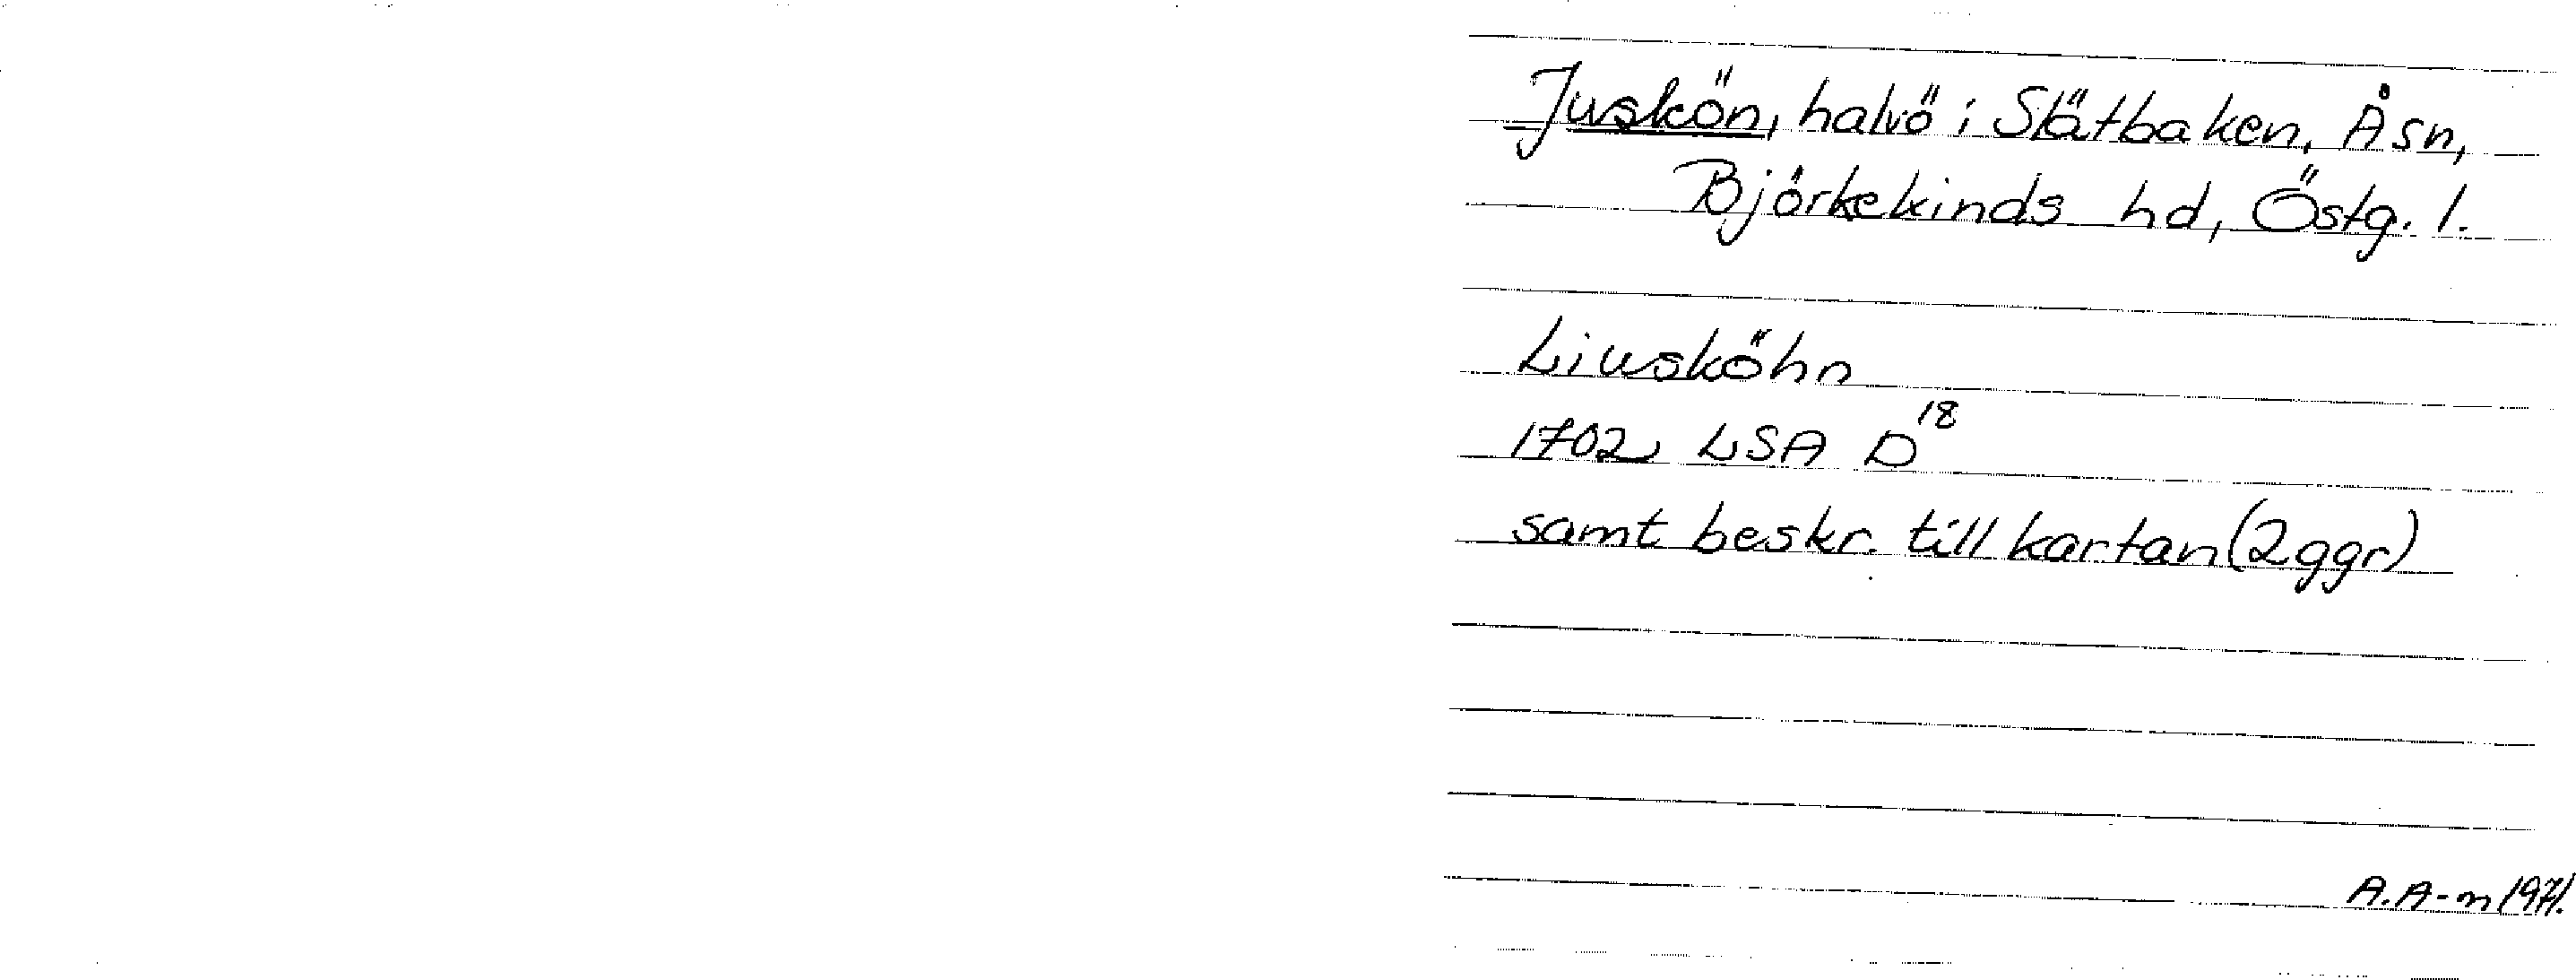 Juskön, halvö i Slätbaken, Å sn,
Björkekinds hd, Östg. l.
Liusköhn
1702 LSA D18
samt beskr. till kartan (2 ggr)
A.A-m 1971.